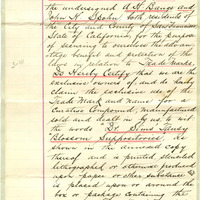 the undersigned A H Bundy and
John H. Spohn both residents of
the City and County of San Francisco
State of California, for the purpose
of securing to ourselves the advan-
tage benefit and protection of the
laws in relation to Trade Marks,
Do Hereby Certify that we are the
exclusive owners of, and do hereby
claim the exclusive use of the
Trade Mark and name for a
Curative Compound, manufactured
sold and dealt in by us, to wit
the words Dr. Sims
Blossom Suppositories As
shown in the annexed copy
thereof and is printed stencilled
lithographed or otherwise produced
upon paper or other substance &
is placed upon or around the
box or package containing the